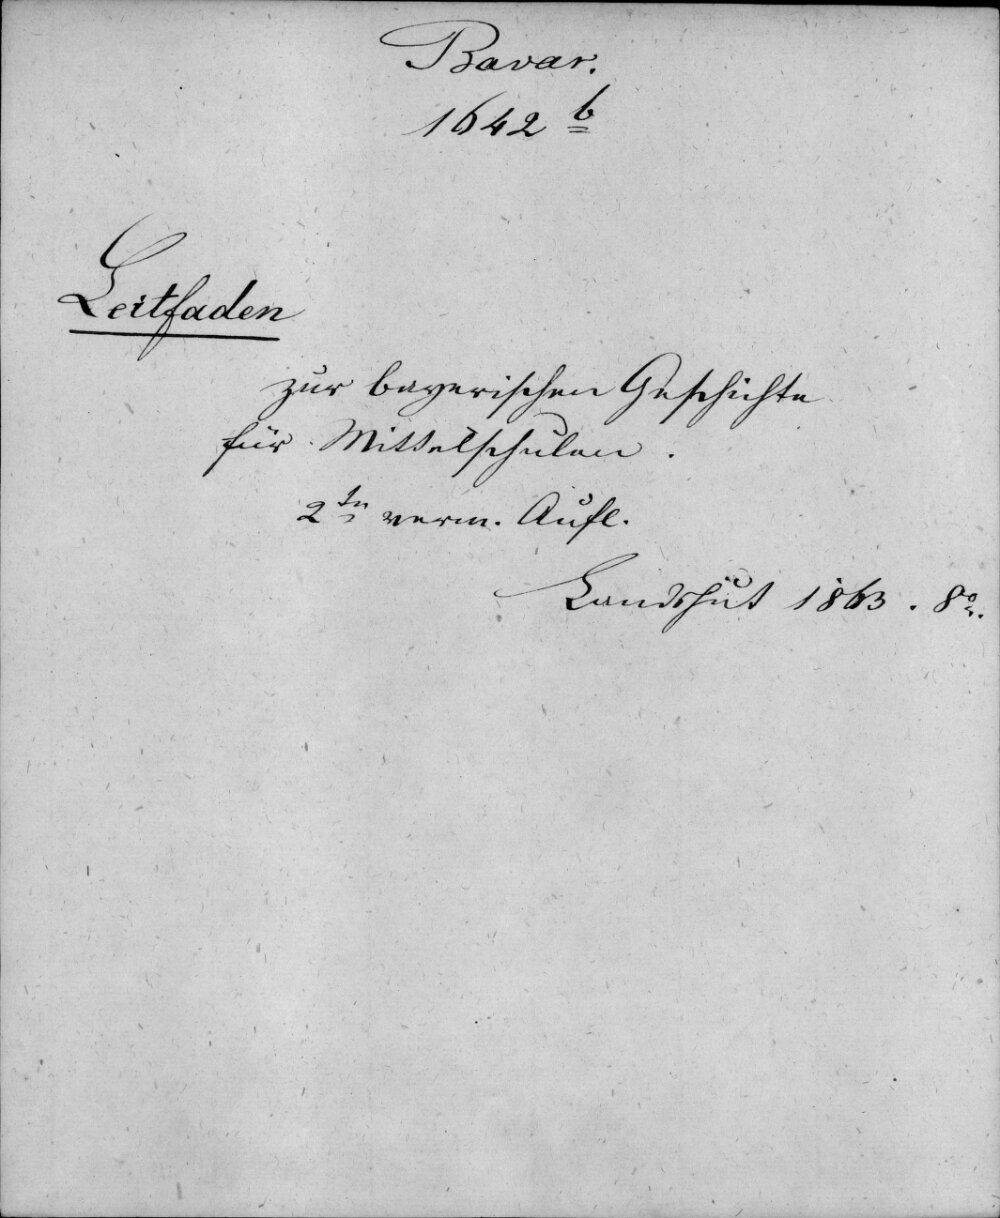 Bavar.
1642 b
Leitfaden
zur bayerischen Geschichte
für Mittelschulen.
2te verm. Aufl.
Landshut 1863. 8o.